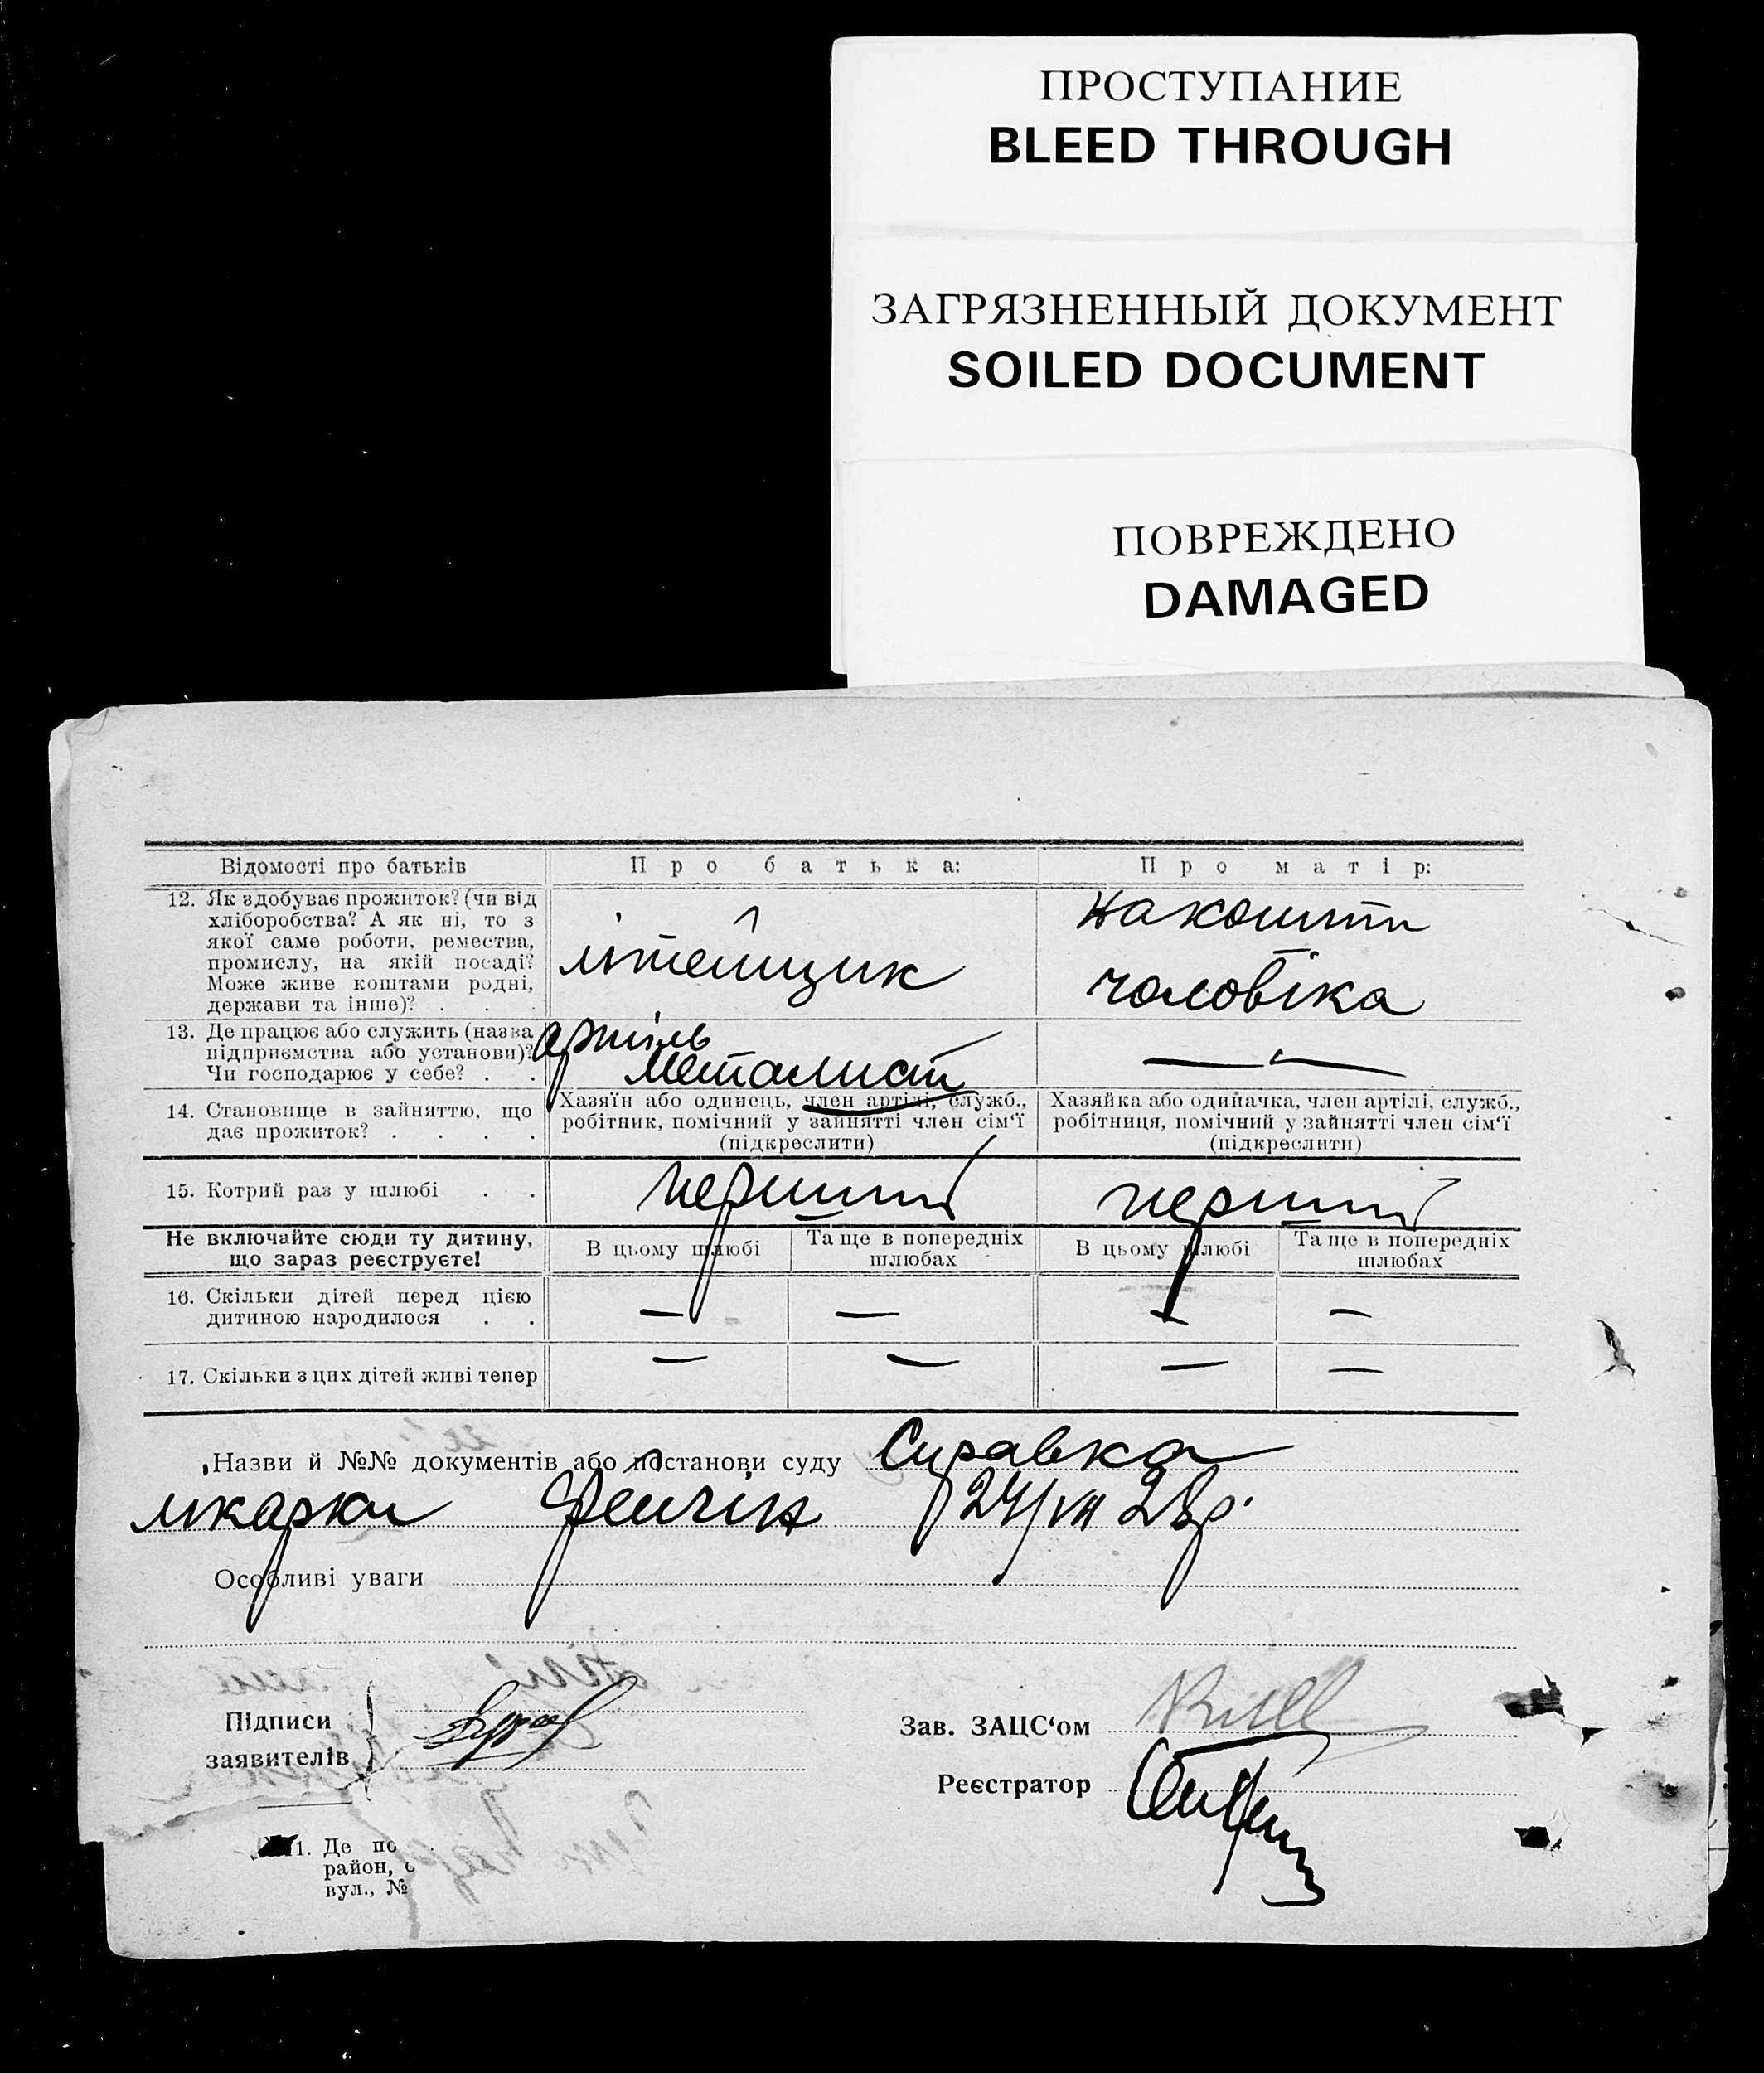 ПРОСТУПАНИЕ
BLEED THROUGH
ЗАГРЯЗНЕННЫЙ ДОКУМЕНТ
SOILED DOCUMENT
ПОВРЕЖДЕНО
DAMAGED
Відомості про батьків
Про батька:
Про матір:
12. Як здобуває прожиток? (чи від
хліборобства? А як ні, то з
якої саме роботи, ремества,
промислу, на якій посаді?
Може живе коштами родні,
держави та інше)? . .
літейщик
на кошти
чоловіка
13. Де працює або служить (назва
підприємства або установи)?
Чи господарює у себе? . .
артіль
Металист
—
14. Становище в зайняттю, що
дає прожиток? . . . .
Хазяїн або одинець, член артілі, служб.,
робітник, помічний у зайнятті член сім‘ї
(підкреслити)
Хазяйка або одиначка, член артілі, служб.,
робітниця, помічний у зайнятті член сім‘ї
(підкреслити)
15. Котрий раз у шлюбі . .
перший
перший
Не включайте сюди ту дитину,
що зараз реєструєте!
В цьому шлюбі
Та ще в попередніх
шлюбах
В цьому шлюбі
Та ще в попередніх
шлюбах
16. Скільки дітей перед цією
дитиною народилося . .
— — — —
17. Скільки з цих дітей живі тепер
— — — —
Назви й №№ документів або постанови суду Справка
лікарки 24/VII 28р.
Особливі уваги
Підписи
заявителів
Зав. ЗАЦС‘ом
Реєстратор
1. Де по
район, с
вул., №